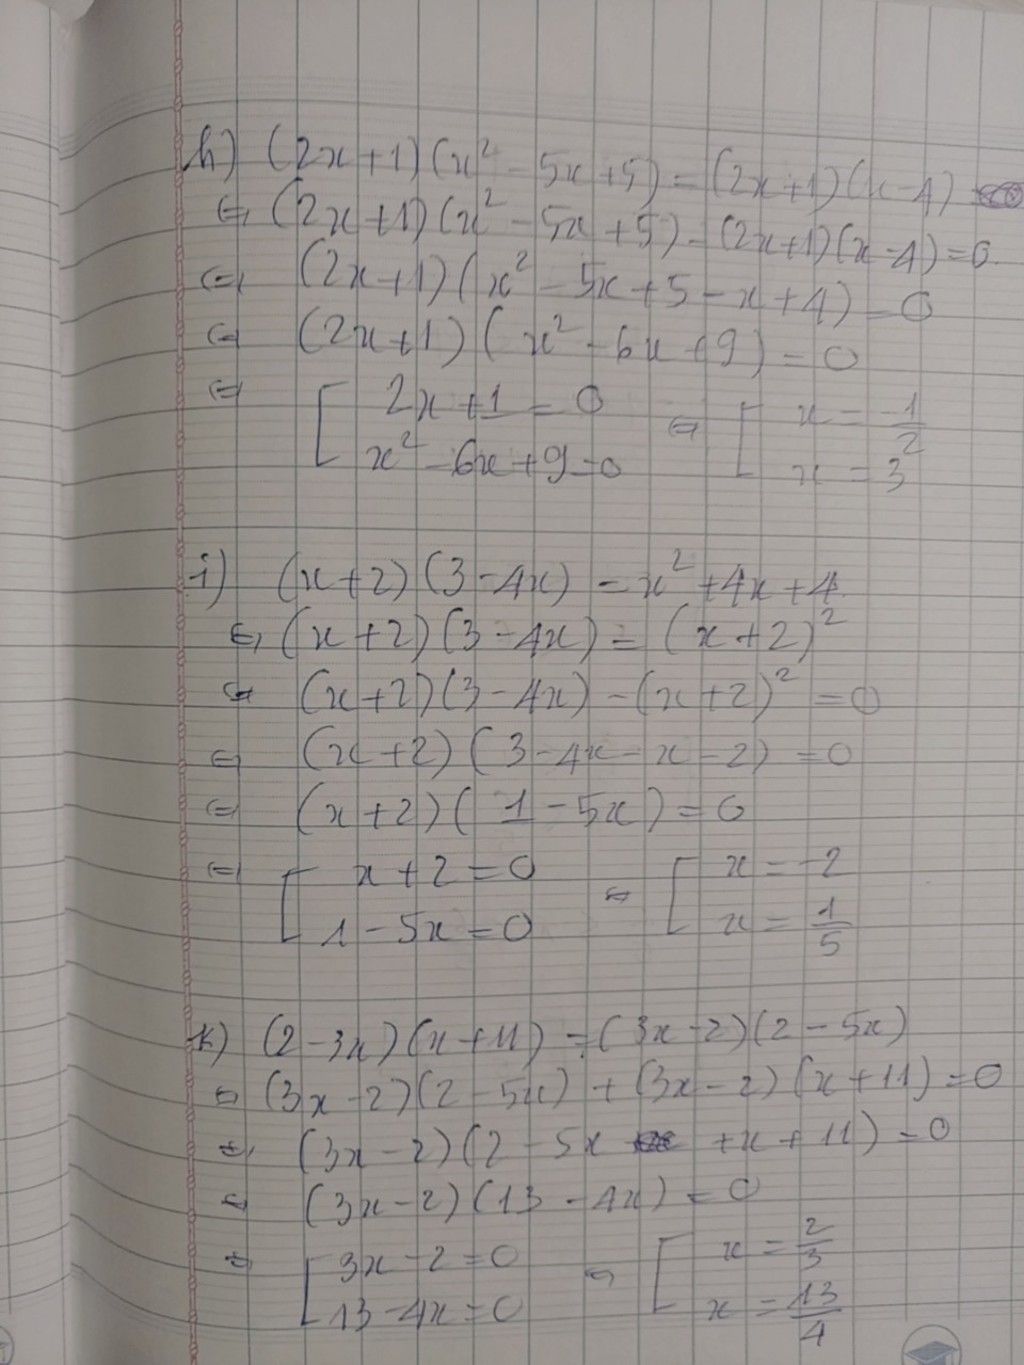 h) (2x+1)(x² - 5x+5) = (2x+1)(x-4)
⇔ (2x+1)(x² - 5x+5) - (2x+1)(x-4) = 0
⇔ (2x+1)(x² - 5x+5-x+4) = 0
⇔ (2x+1)(x² - 6x+9) = 0
⇔ [ 2x+1 = 0 ⇔ [ x = -1/2
x² - 6x+9 = 0 x = 3
i) (x+2)(3-4x) = x²+4x+4
⇔ (x+2)(3-4x) = (x+2)²
⇔ (x+2)(3-4x) - (x+2)² = 0
⇔ (x+2)(3-4x-x-2) = 0
⇔ (x+2)(1-5x) = 0
⇔ [ x+2 = 0 ⇔ [ x = -2
1-5x = 0 x = 1/5
k) (2-3x)(x+11) = (3x-2)(2-5x)
⇔ (3x-2)(2-5x) + (3x-2)(x+11) = 0
⇔ (3x-2)(2-5x +x+11) = 0
⇔ (3x-2)(13-4x) = 0
⇔ [ 3x-2 = 0 ⇔ [ x = 2/3
13-4x = 0 x = 13/4